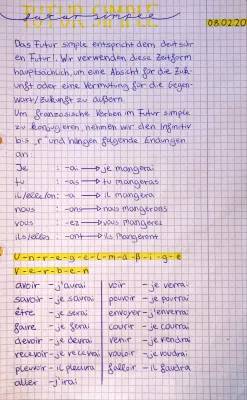 FUTUR SIMPLE
futur simple
08.02.20
Das Futur simple entspricht dem deutsch
en Futur! Wir verwenden diese Zeitform
hauptsächlich, um eine Absicht für die Zuk-
unft oder eine Vermutung für die Gegen-
wart/Zukunft zu äußern.
Um französische Verben im Futur simple
zu konjugieren nehmen wir den Infinitiv
bis r und hängen folgende Endungen
an:
Je : -ai → je mangerai
tu : -as → tu mangeras
il/elle/on : -a → il mangera
nous : -ons → nous mangerons
vous : -ez → vous mangerez
ils/elles : -ont → ils mangeront
U-n-r-e-g-e-l-m-ä-ß-i-g-e
V-e-r-b-e-n
avoir - j'aurai voir - je verrai
savoir - je saurai pouvoir - je pourrai
être - je serai envoyer - j'enverrai
faire - je ferai courir - je courrai
devoir - je devrai venir - je viendrai
recevoir - je recevrai vouloir - je voudrai
pleuvoir - il pleuvra falloir - il faudra
aller - j'irai